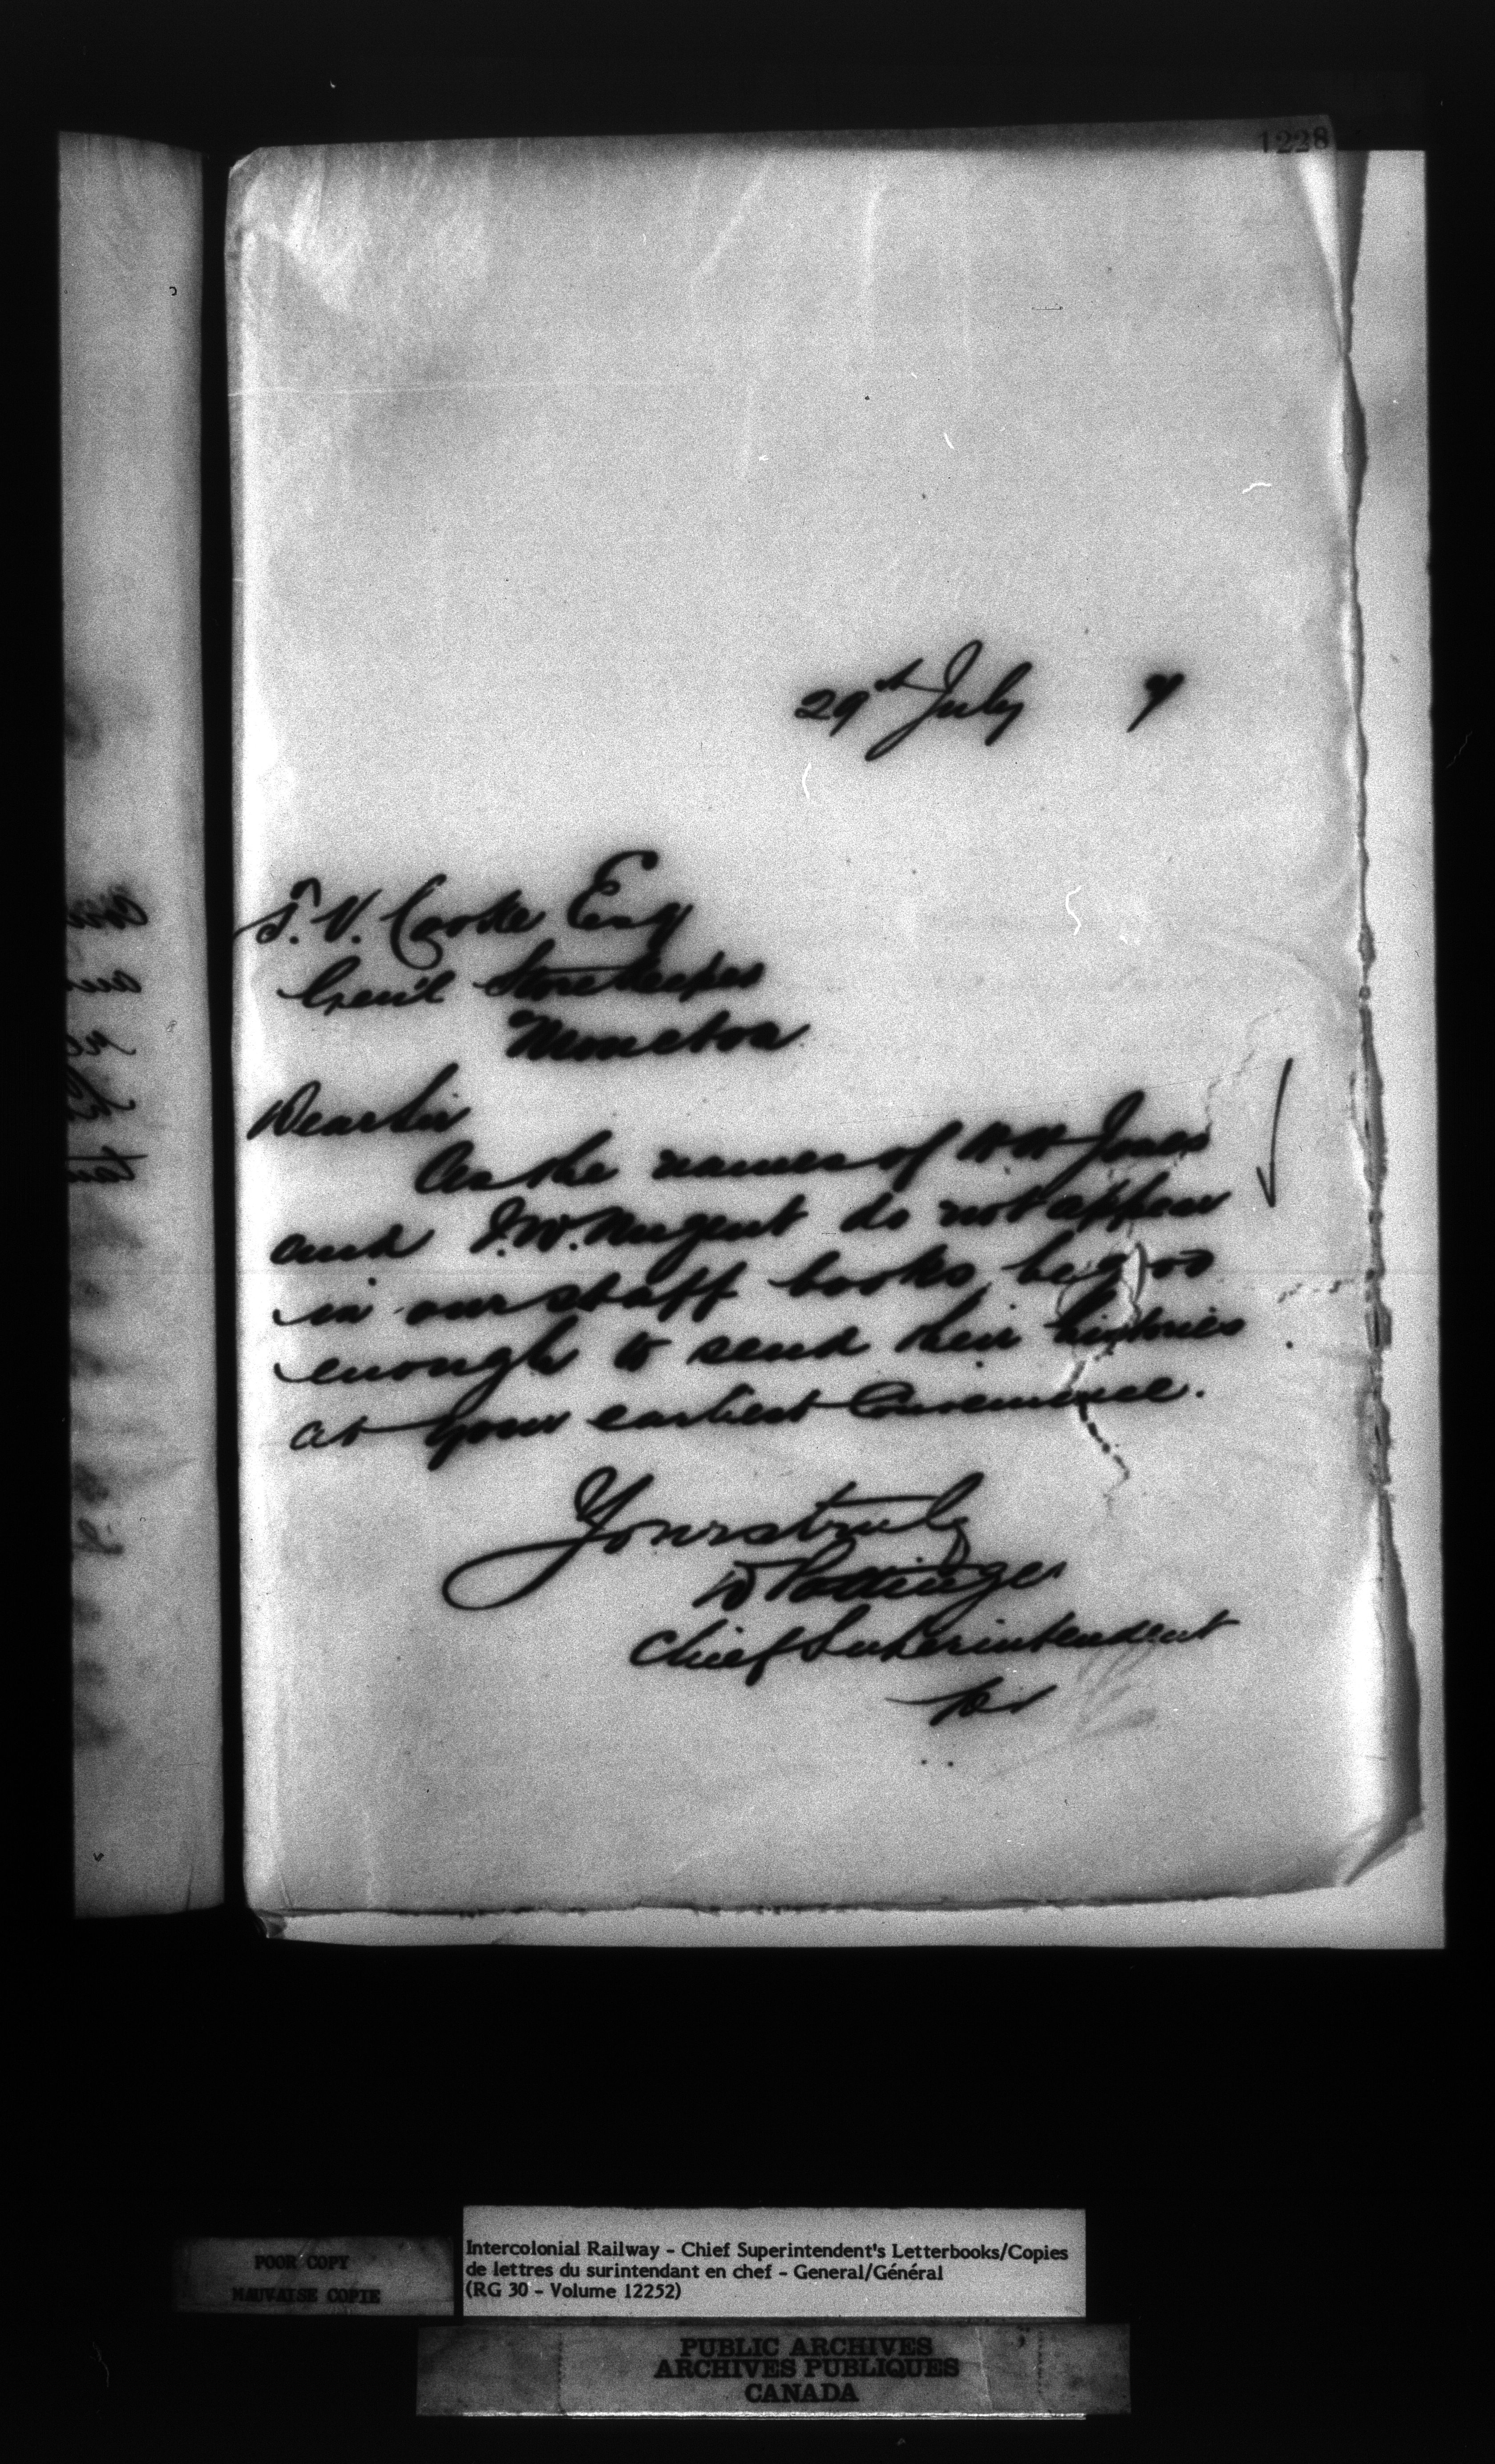 1228
29th July 7
T. V. Cooke Esq
Gen'l Storekeeper
Moncton
Dear Sir
As the names of W W Jones
and J. W. Nugent do not appear
in our staff books, be good
enough to send their histories
at your earliest Convenience.
Yours truly
D Pottinger
Chief Superintendent
POOR COPY
MAUVAISE COPIE
Intercolonial Railway - Chief Superintendent's Letterbooks/Copies
de lettres du surintendant en chef - General/Général
(RG 30 - Volume 12252)
PUBLIC ARCHIVES
ARCHIVES PUBLIQUES
CANADA